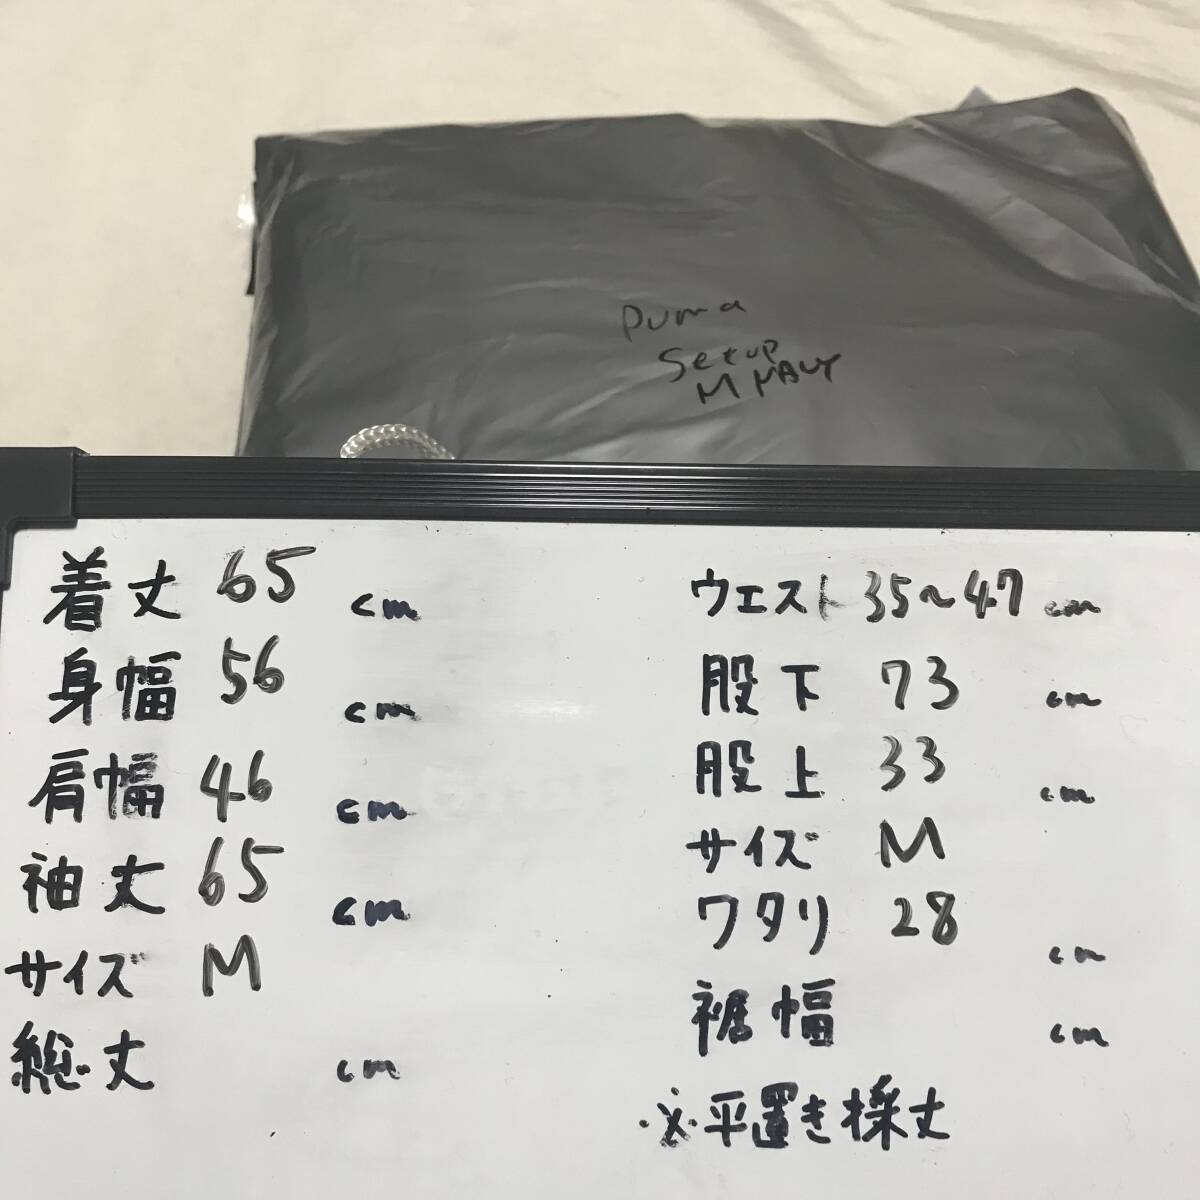 Puma
Setup
M NAVY
着丈 65 cm
身幅 56 cm
肩幅 46 cm
袖丈 65 cm
サイズ M
総丈 cm
ウエスト 35~47 cm
股下 73 cm
股上 33 cm
サイズ M
ワタリ 28 cm
裾幅 cm
※平置き採丈